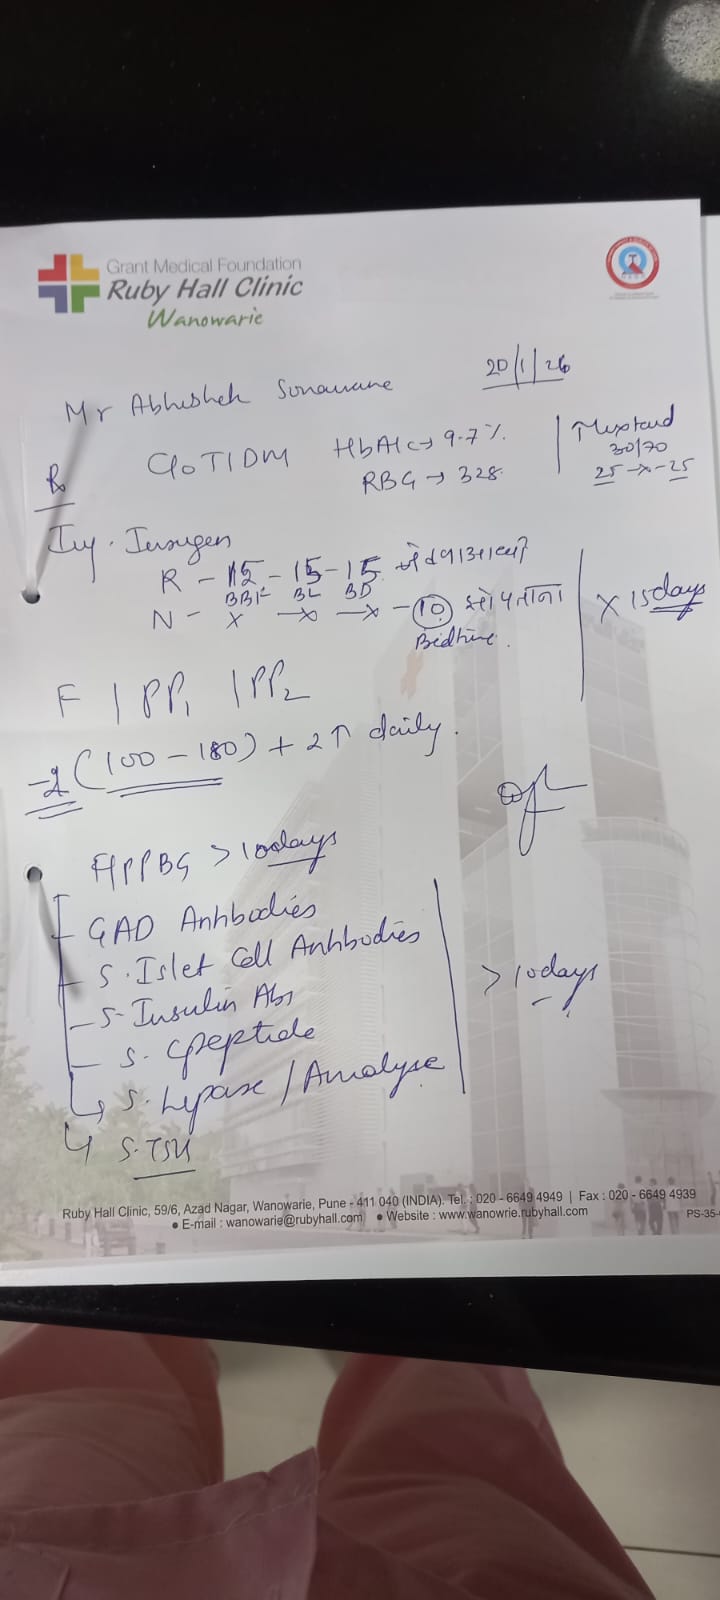 Grant Medical Foundation
Ruby Hall Clinic
Wanowarie
20/1/26
Mr Abhishek Sonawane
Rx C/o T1DM HbA1c → 9.7%.
RBG → 328.
Mixtard
30/70
25 -x- 25
Inj. Insugen
R - 15 - 15 - 15 जेवणाआधी
BBF BL BD
N - x -x -x - 10 झोपताना
Bedtime.
x 15 days
F / PP1 / PP2
-2 (100 - 180) + 2 ↑ daily.
F/PPBG > 10 days
GAD Antibodies
S. Islet Cell Antibodies
S. Insulin Abs
S. Cpeptide
S. Lypase / Amalyse
> 10 days
S. TSH
Ruby Hall Clinic, 59/6, Azad Nagar, Wanowarie, Pune - 411 040 (INDIA). Tel. : 020 - 6649 4949 | Fax : 020 - 6649 4939
• E-mail : wanowarie@rubyhall.com • Website : www.wanowrie.rubyhall.com
PS-35-